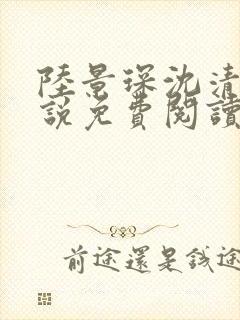 陸景琛沈清
說免費閱讀
前途還是錢途